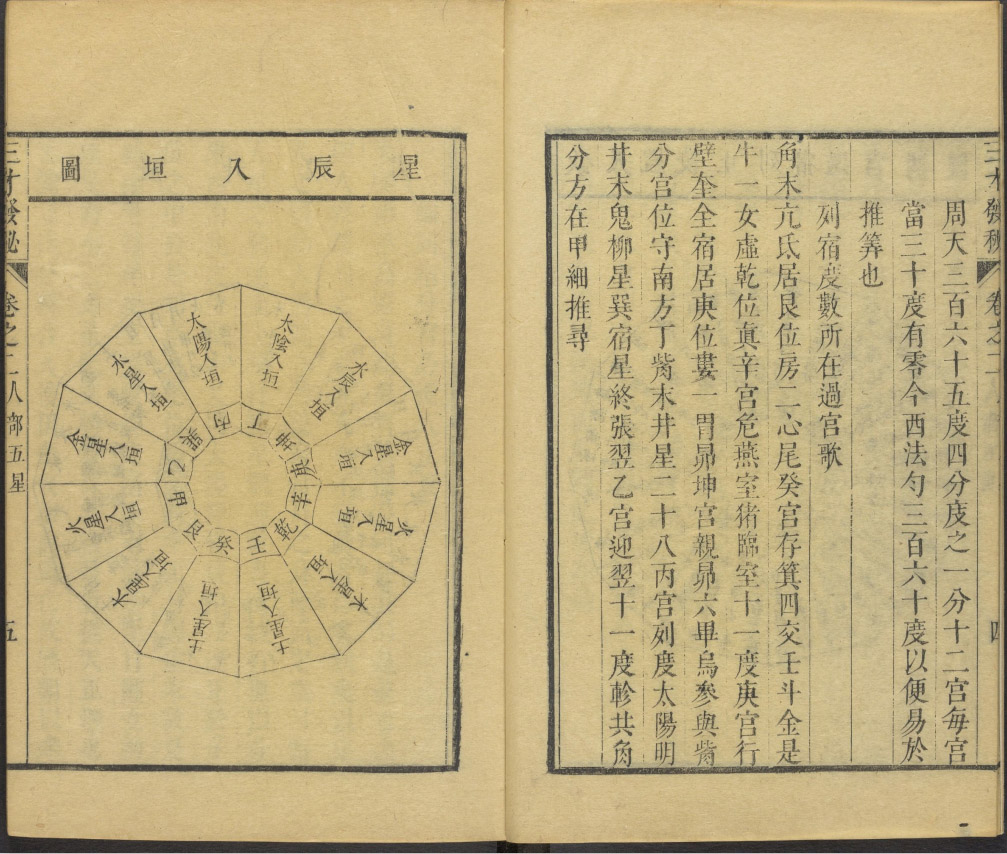 三才發秘
卷之二
四
周天三百六十五度四分度之一分十二宮每宮
當三十度有零今西法勻三百六十度以便易於
推筭也
列宿度數所在過宮歌
角末亢氐居艮位房二心尾癸宮存箕四交壬斗金是
牛一女虛乾位真辛宮危燕室猪臨室十一度庚宮行
壁奎全宿居庚位婁一胃昴坤宮親昴六畢烏參與觜
分宮位守南方丁觜末井星二十八丙宮列度太陽明
井末鬼柳星巽宿星終張翌乙宮迎翌十一度軫共角
分方在甲細推尋
星辰入垣圖
太陰入垣
水辰入垣
金星入垣
火星入垣
木星入垣
土星入垣
土星入垣
木星入垣
火星入垣
金星入垣
水星入垣
太陽入垣
丁
坤
庚
辛
乾
壬
癸
艮
甲
乙
巽
丙
三才發秘
卷之二人部五星
五